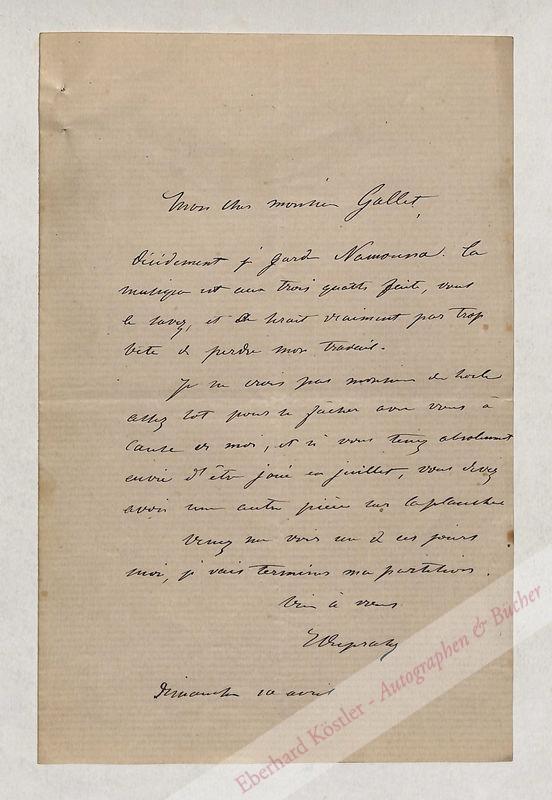 Mon cher monsieur Gallet,
Décidement je garde Namouna. La
musique est aux trois quarts faite, vous
le savez, et ce serait vraiment par trop
bête de perdre mon travail.
Je ne crois pas monsieur du Locle
assez sot pour se fâcher avec vous à
cause de moi, et si vous tenez absolument
envie d'être joué en juillet, vous devez
avoir une autre pièce sur la planche
Venez me voir un de ces jours
moi, je vais terminer ma partition.
Bien à vous
Duprato
Dimanche 10 avril
Eberhard Köstler - Autographen & Bücher